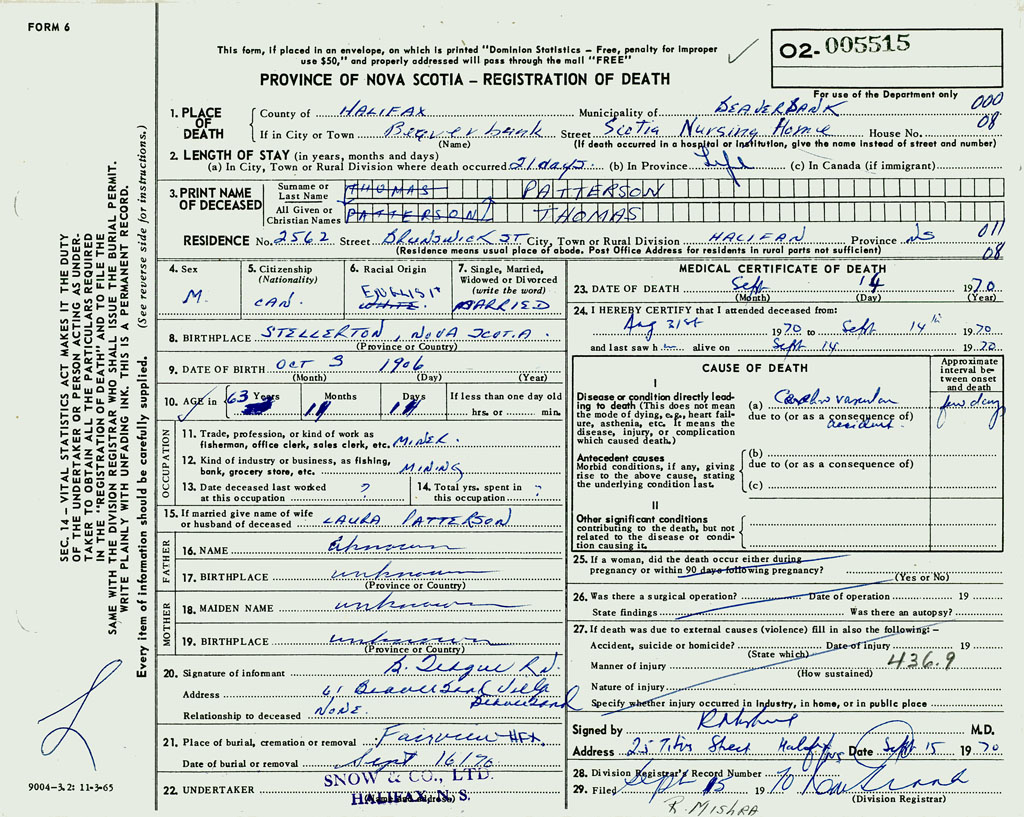 FORM 6
This form, if placed in an envelope, on which is printed "Dominion Statistics – Free, penalty for improper
use $50," and properly addressed will pass through the mail "FREE"
PROVINCE OF NOVA SCOTIA – REGISTRATION OF DEATH
02-005515
For use of the Department only
000
08
1. PLACE OF DEATH
County of HALIFAX Municipality of BEAVERBANK
If in City or Town Beaverbank Street Scotia Nursing Home House No.
(Name) (If death occurred in a hospital or institution, give the name instead of street and number)
2. LENGTH OF STAY (in years, months and days)
(a) In City, Town or Rural Division where death occurred 21 days. (b) In Province Life (c) In Canada (if immigrant)
3. PRINT NAME OF DECEASED
Surname or Last Name THOMAS PATTERSON
All Given or Christian Names PATTERSON THOMAS
RESIDENCE No. 2562 Street BRUNSWICK ST City, Town or Rural Division HALIFAX Province NS
(Residence means usual place of abode. Post Office Address for residents in rural parts not sufficient)
011
08
4. Sex
M.
5. Citizenship
(Nationality)
CAN.
6. Racial Origin
ENGLISH
WHITE.
7. Single, Married,
Widowed or Divorced
(write the word)
MARRIED
8. BIRTHPLACE STELLERTON, NOVA SCOTIA
(Province or Country)
9. DATE OF BIRTH OCT 3 1906
(Month) (Day) (Year)
10. AGE in 63 Years 11 Months 11 Days If less than one day old
hrs. or min.
OCCUPATION
11. Trade, profession, or kind of work as
fisherman, office clerk, sales clerk, etc. MINER.
12. Kind of industry or business, as fishing,
bank, grocery store, etc. MINING
13. Date deceased last worked
at this occupation ?
14. Total yrs. spent in
this occupation ?
15. If married give name of wife
or husband of deceased LAURA PATTERSON
FATHER
16. NAME unknown
17. BIRTHPLACE unknown
(Province or Country)
MOTHER
18. MAIDEN NAME unknown
19. BIRTHPLACE unknown
(Province or Country)
20. Signature of informant B. Teague R.N.
Address 61 Beaverbank Villa
Beaverbank
Relationship to deceased NONE.
21. Place of burial, cremation or removal Fairview HFX.
Date of burial or removal Sept 16/70
22. UNDERTAKER SNOW & CO., LTD.
HALIFAX, N. S.
(Name and address)
MEDICAL CERTIFICATE OF DEATH
23. DATE OF DEATH Sept 14 1970
(Month) (Day) (Year)
24. I HEREBY CERTIFY that I attended deceased from:
Aug 31st 1970 to Sept 14th 1970
and last saw h alive on Sept 14 1970
CAUSE OF DEATH
Approximate
interval be-
tween onset
and death
I
Disease or condition directly lead-
ing to death (This does not mean
the mode of dying, e.g., heart fail-
ure, asthenia, etc. It means the
disease, injury, or complication
which caused death.)
(a) vascular
due to (or as a consequence of)
accident
few days
Antecedent causes
Morbid conditions, if any, giving
rise to the above cause, stating
the underlying condition last.
(b)
due to (or as a consequence of)
(c)
II
Other significant conditions
contributing to the death, but not
related to the disease or condi-
tion causing it.
25. If a woman, did the death occur either during
pregnancy or within 90 days following pregnancy?
(Yes or No)
26. Was there a surgical operation? Date of operation 19
State findings Was there an autopsy?
27. If death was due to external causes (violence) fill in also the following: –
Accident, suicide or homicide? Date of injury 19
(State which)
436.9
Manner of injury
(How sustained)
Nature of injury
Specify whether injury occurred in industry, in home, or in public place
Signed by M.D.
Address 25 Titus Street Halifax NS Date Sept 15 1970
28. Division Registrar's Record Number
29. Filed Sept 15 1970
(Division Registrar)
R. MISHRA
SEC. 14 – VITAL STATISTICS ACT MAKES IT THE DUTY
OF THE UNDERTAKER OR PERSON ACTING AS UNDER-
TAKER TO OBTAIN ALL THE PARTICULARS REQUIRED
IN THE "REGISTRATION OF DEATH" AND TO FILE THE
SAME WITH THE DIVISION REGISTRAR WHO SHALL ISSUE THE BURIAL PERMIT.
WRITE PLAINLY WITH UNFADING INK. THIS IS A PERMANENT RECORD.
Every item of information should be carefully supplied. (See reverse side for instructions.)
9004-3.2: 11-3-65